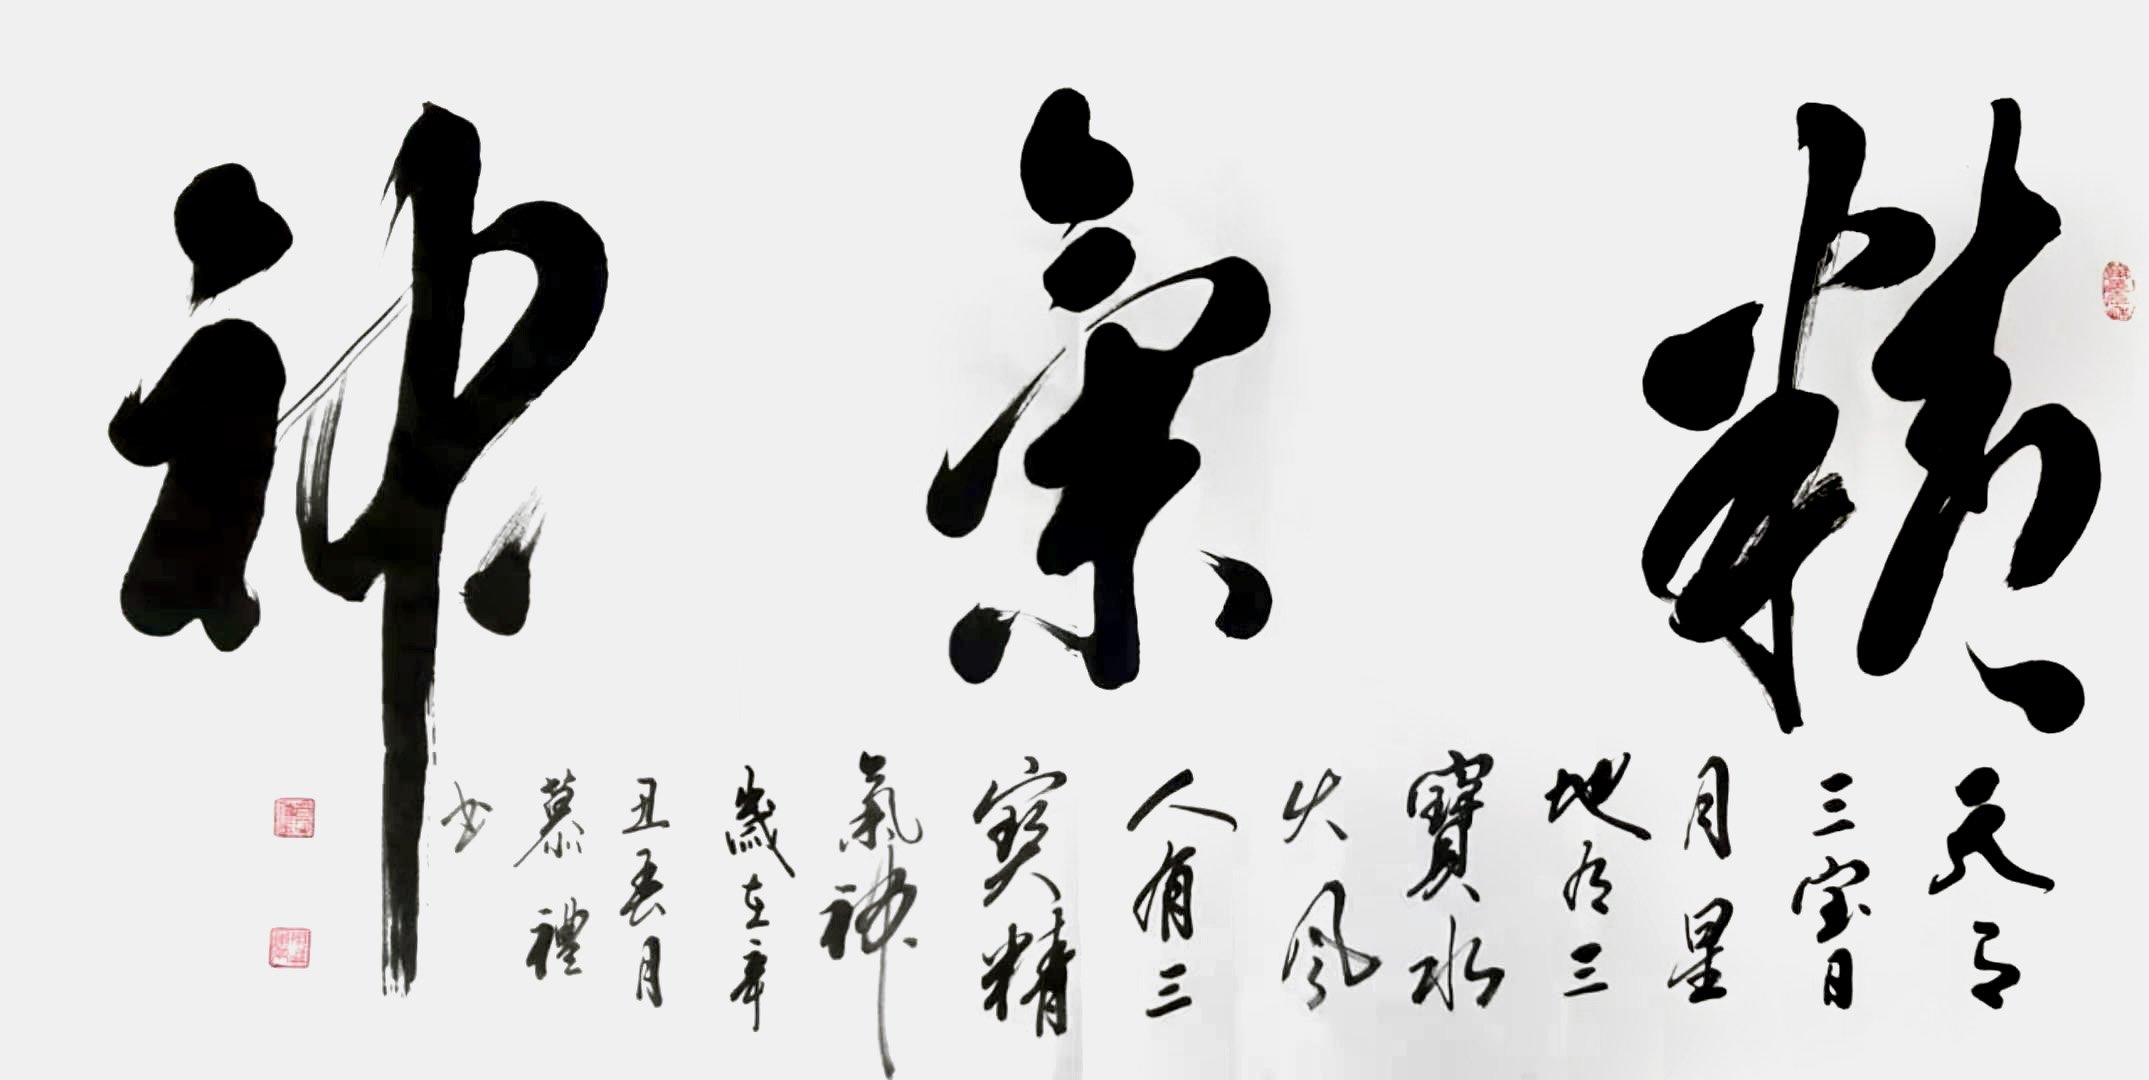 精氣神
天有
三宝日
月星
地有三
寶水
火风
人有三
寶精
氣神
歲在辛
丑春月
慕禮
书